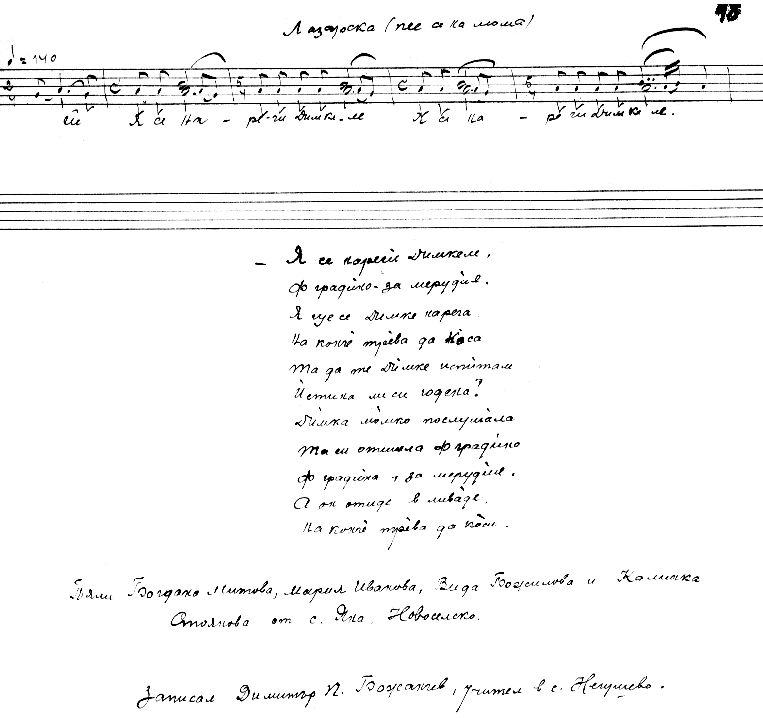 Лазарска (пее се на мома)
♩ = 140
ей Я се на - ре-ги Димке-ле Я се на - ре ги Димке ле.
– Я се нареги Димкеле,
Ф градѝно-за мерудѝя.
Я ще се Димке нарега
На кончѐ трѐва да коса
Та да те Дѝмке испѝтам
Ѝстина ли си годена?
Дѝмка мòмко послушàла
Та си отишла ф градѝно
Ф градѝна, за мерудѝя.
А он отиде в ливàде.
На кончѐ трѐва да кòси.
Пяли Богдана Митова, Мария Иванова, Вида Божилова и Калинка
Стоянова от с. Яна. Новоселско.
Записал Димитър П. Божанчев, учител в с. Негушево.